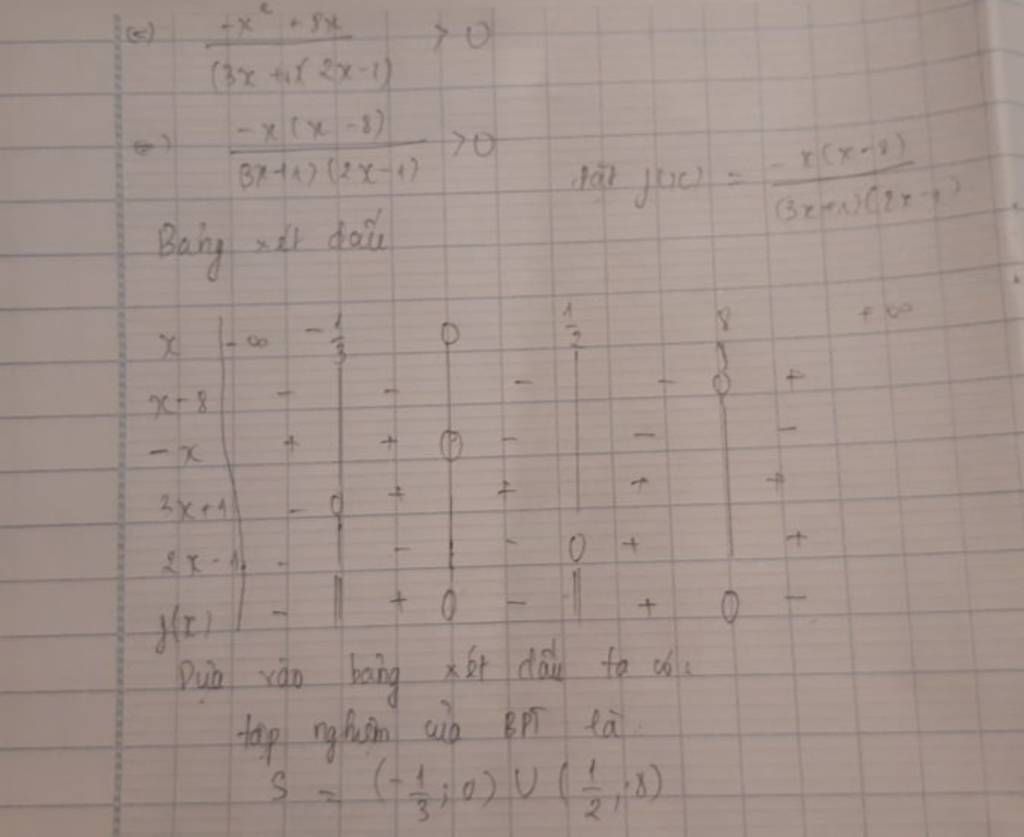 (=) (-x² + 8x)/((3x+1)(2x-1)) > 0
(=) (-x(x-8))/(3x+1)(2x-1) > 0 đặt f(x) = (-x(x-8))/((3x+1)(2x-1))
Bảng xét dấu
x | -∞ -1/3 0 1/2 8 +∞
x-8 | - | - | - | - 0 +
-x | + | + 0 - | - | -
3x+1 | - 0 + | + | + | +
2x-1 | - | - | - 0 + | +
f(x) | - || + 0 - || + 0 -
Dựa vào bảng xét dấu ta có:
tập nghiệm của BPT là
S = (-1/3; 0) ∪ (1/2; 8)